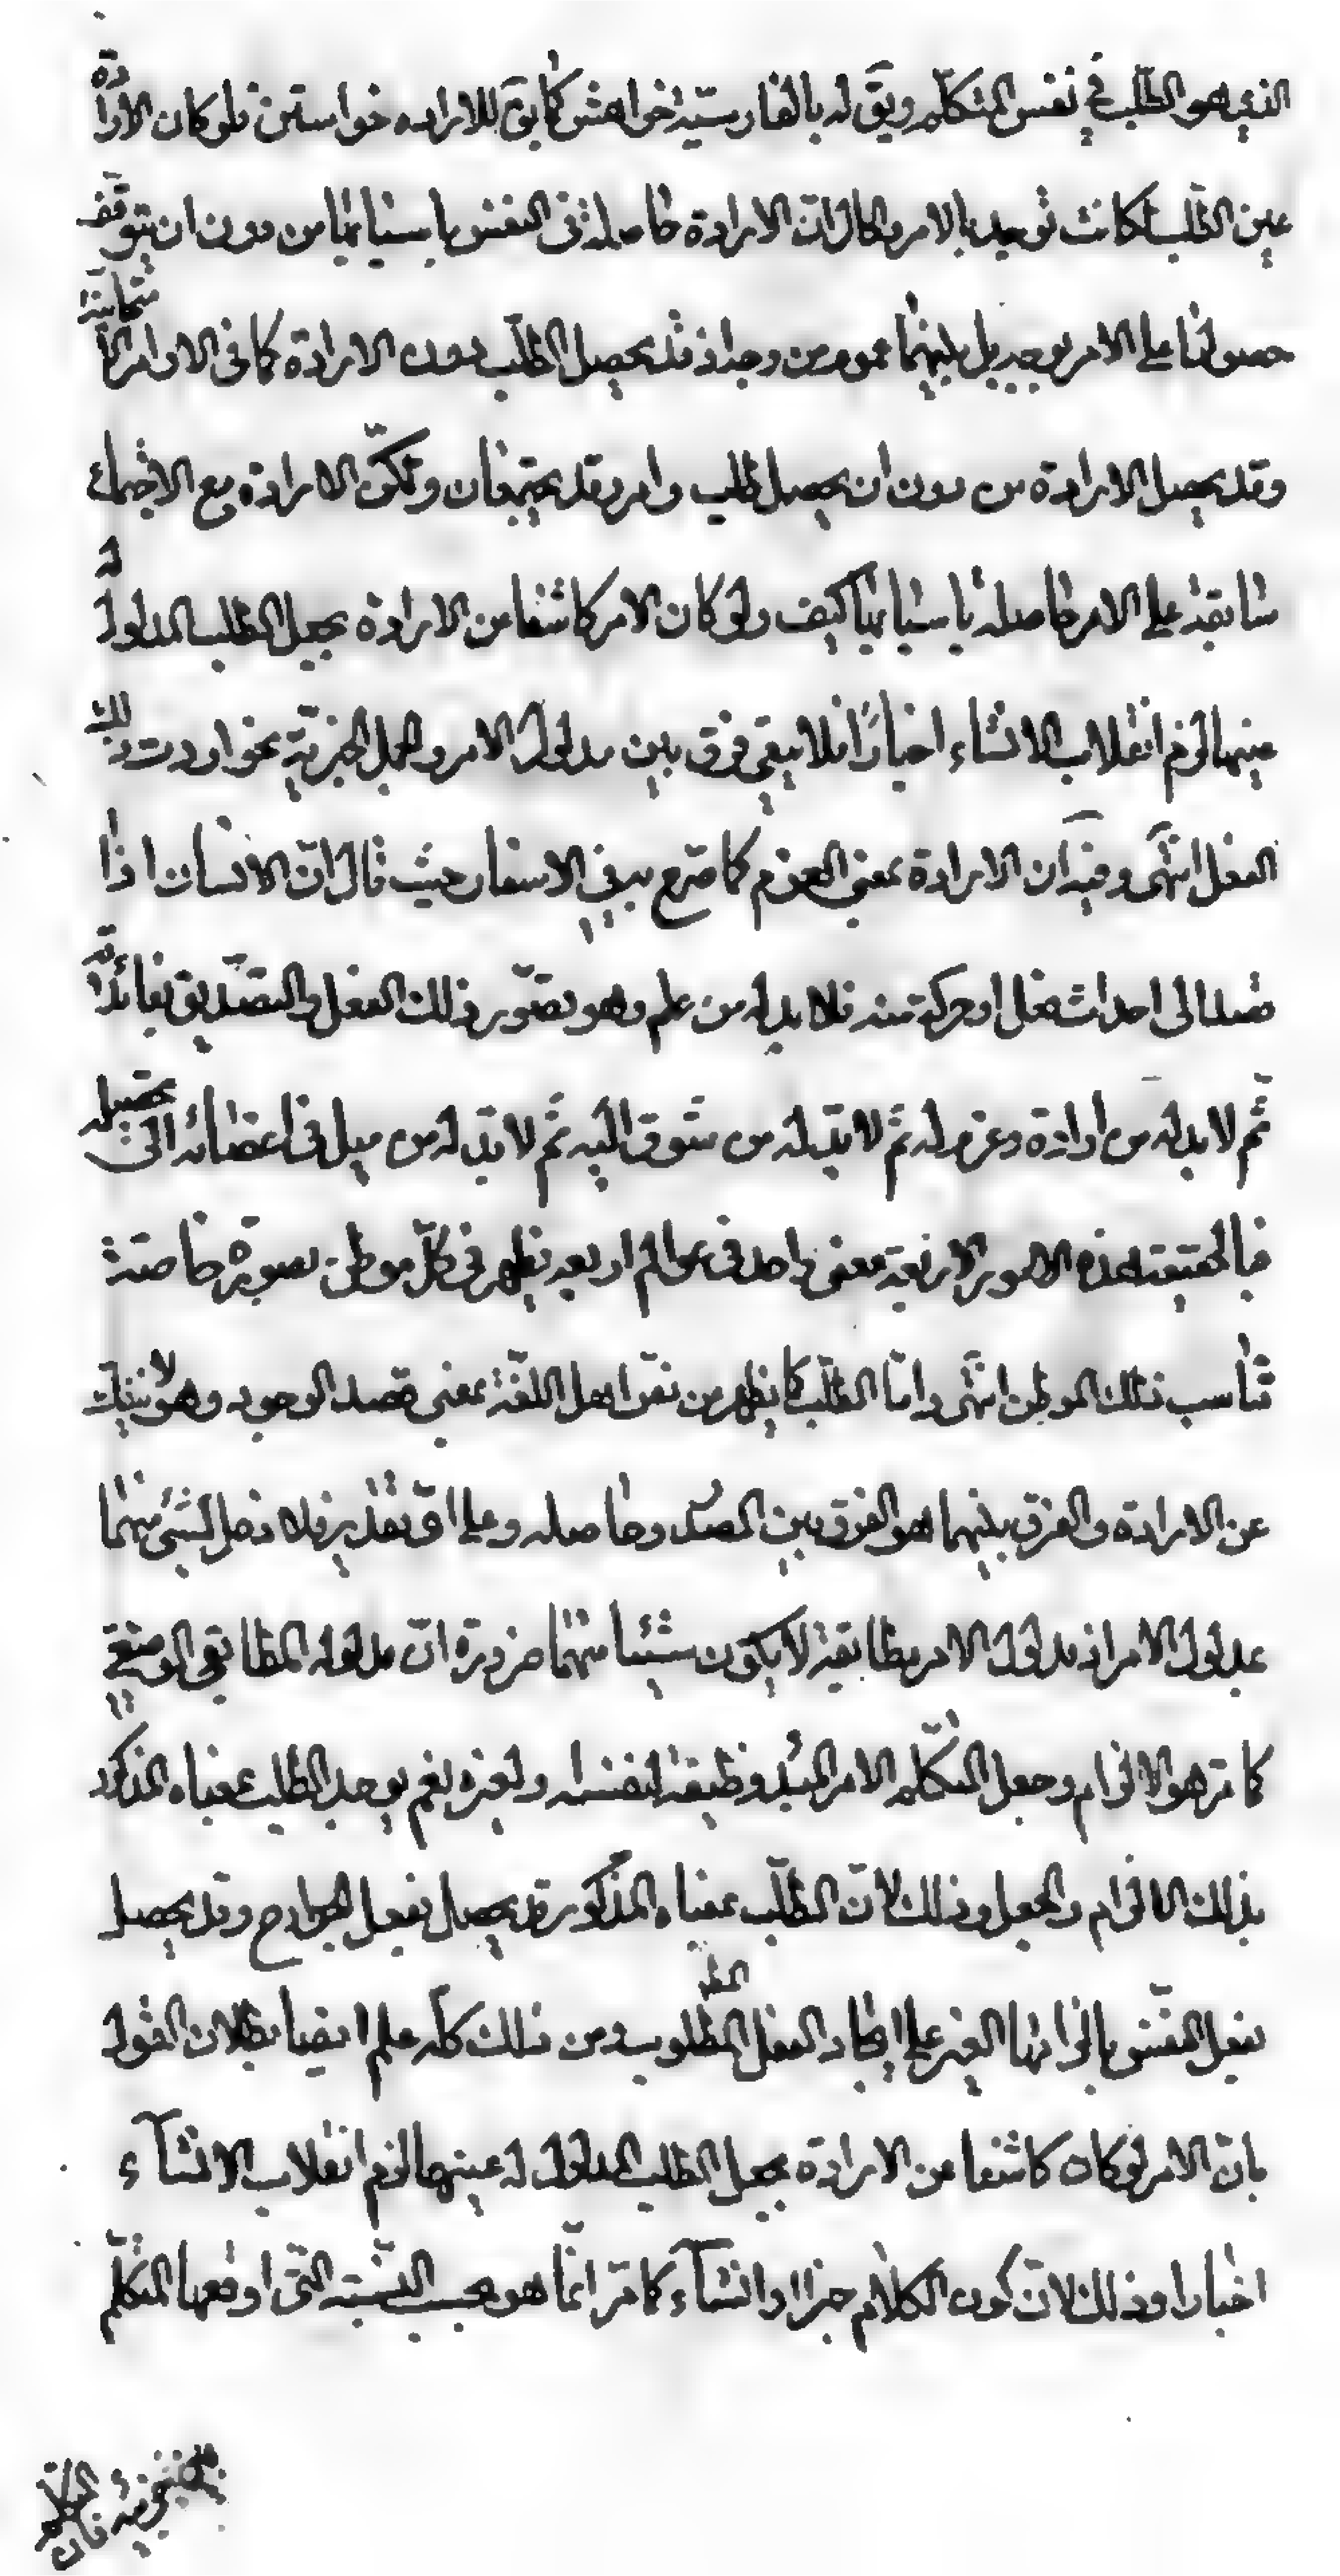 الذي هو الطلب في نفس المتكلم ويق له بالفارسيّة خواهش كما يق للاراده خواستن فلو كان الارادة
عين الطلب لكانت توجد بالامر والحال ان الارادة حاصلة في النفس باسبابها من دون ان يتوقف
حصولها على الامر بوجه بل بينهما عموم من وجه اذ قد يحصل الطلب بدون الارادة كما في الاوامر الامتحانية
وقد يحصل الارادة من دون ان يحصل طلب وامر وقد يجتمعان وتكون الارادة مع الاجتماع
سابقة على الامر حاصلة باسبابها كيف ولو كان الامر كاشفا عن الارادة بجعل الطلب المدلول له
عينها لزم انقلاب الانشاء اخبارًا فلا يبقى فرق بين مدلول الامر والجمل الخبرية نحو اردت ذلك
الفعل انتهى وفيه ان الارادة بمعنى العزم كما صرّح به في الاسفار حيث قال انّ الانسان اذا
قصد الى احداث فعل او حركة منه فلا بد له من علم وهو تصوّر ذلك الفعل والتصديق بفائدته
ثم لا بد له من ارادة وعزم له ثم لا بدّ له من شوق اليه ثم لا بدّ له من ميل في اعضائه الى تحصيله
فبالحقيقة هذه الامور الاربعة معنى واحد في عوالم اربعه يظهر في كلّ موطن بصورة خاصة
تناسب ذلك الموطن انتهى وامّا الطلب كما يظهر من نقل اهل اللغة بمعنى قصد الوجود وهو لا ينفك
عن الارادة والفرق بينهما هو الفرق بين المصدر وحاصله وعلى اىّ تقدير فلا دخل لشيئ منهما
بمدلول الامر اذ مدلول الامر مطابقة لا يكون شيئا منهما ضرورة انّ مدلوله المطابقي الوضعي
كما مر هو الالزام وجعل المتكلم الامر المبدء وظيفة لنفسه او لغيره نعم يوجد الطلب بمعناه المذكور
بذلك الالزام والجعل وذلك لانّ الطلب بمعناه المذكور قد يحصل بفعل الجوارح وقد يحصل
بفعل النفس بالزامها الغير على ايجاد الفعل المطلوب ومن ذلك كله علم ايضا بطلان القول
بان الامر لو كان كاشفا عن الارادة بجعل الطلب المدلول له عينها لزم انقلاب الانشآء
اخبارا وذلك لانّ كون الكلام خبرا او انشآء كما مرّ انّما هو بحسب النسبة التي اوقعها المتكلّم